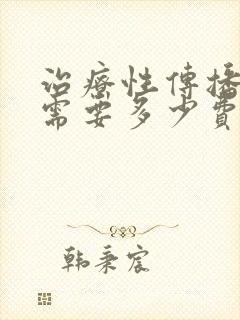 治療性傳播
需要多少費
韩秉宸